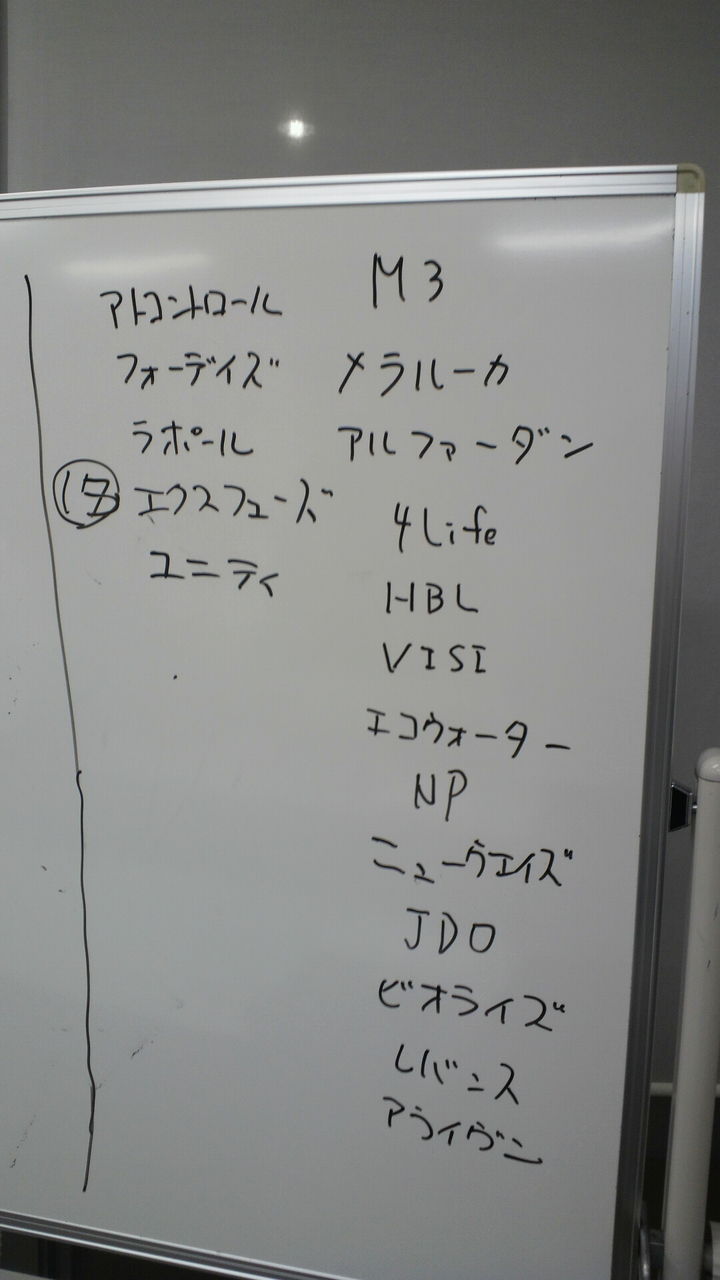 アトコントロール
フォーデイズ
ラポール
18 エクスフューズ
ユニティ
M3
メラルーカ
アルファーダン
4Life
HBL
VISI
エコウォーター
NP
ニューウエイズ
JDO
ビオライズ
レバニス
アライヴン